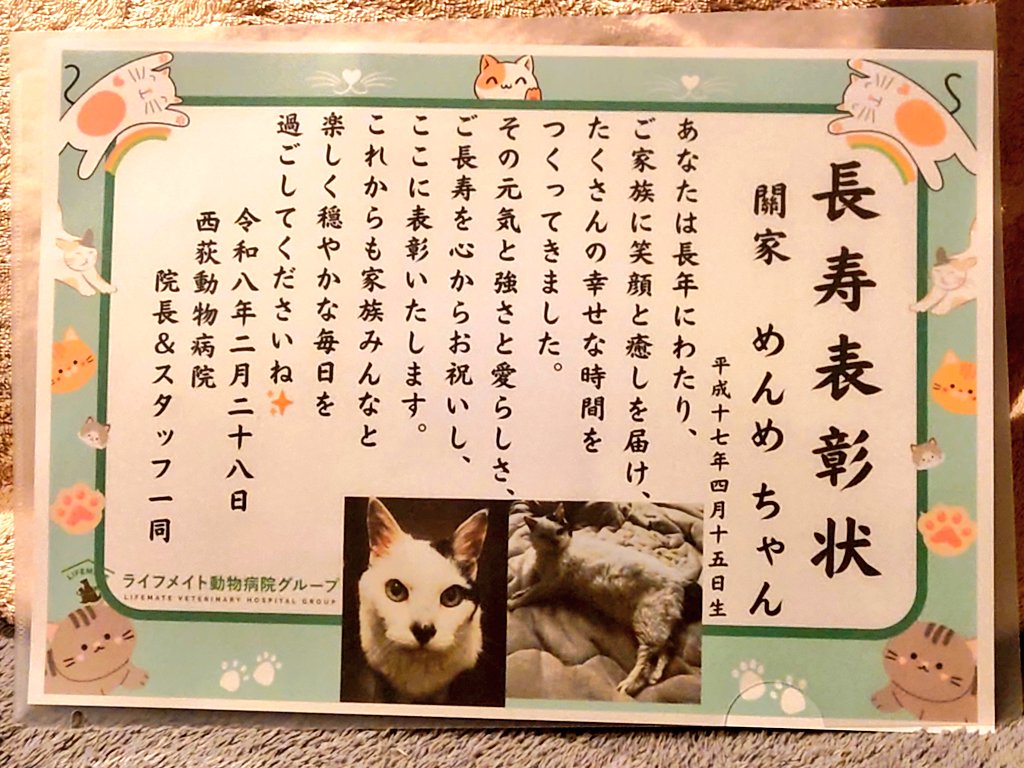 長寿表彰状
關家 めんめちゃん
平成十七年四月十五日生
あなたは長年にわたり、
ご家族に笑顔と癒しを届け、
たくさんの幸せな時間を
つくってきました。
その元気と強さと愛らしさ、
ご長寿を心からお祝いし、
ここに表彰いたします。
これからも家族みんなと
楽しく穏やかな毎日を
過ごしてくださいね✨
令和八年二月二十八日
西荻動物病院
院長&スタッフ一同
ライフメイト動物病院グループ
LIFEMATE VETERINARY HOSPITAL GROUP